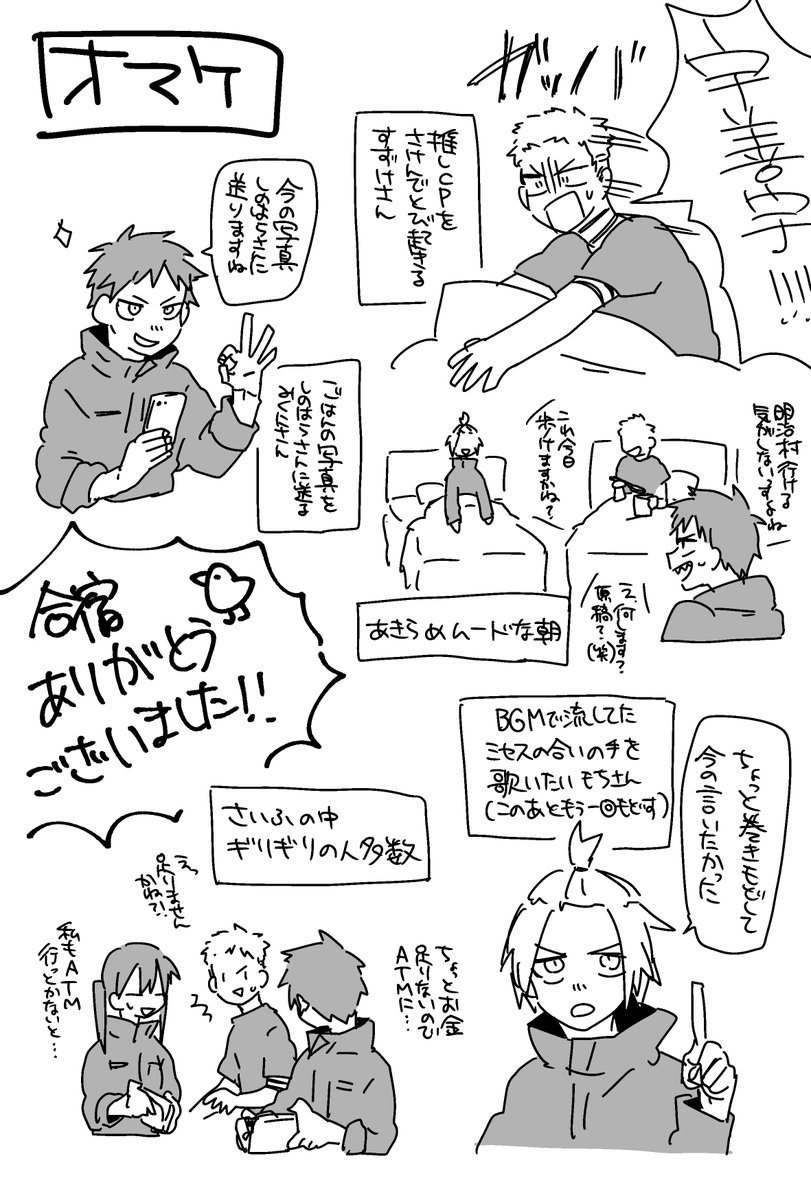 オマケ
ガバッ
宇善宇
!!!!
推しCPを
さけんでとび起きる
すずけさん
今の写真
しのはらさんに
送りますね
ごはんの写真を
しのはらさんに送る
みくにさん
明治村行ける
気がしないっすよね
これ今日
歩けますかね?
え、何します?
原稿?(笑)
あきらめムードな朝
合宿
ありがとう
ございました!!
BGMで流してた
ミセスの合いの手を
歌いたいもちさん
(このあともう一回もどす)
ちょっと巻きもどして
今の言いたかった
さいふの中
ギリギリの人多数
えっ
足りません
かね?!
私もATM
行っとかないと…
ちょとお金
足りないので
ATMに…